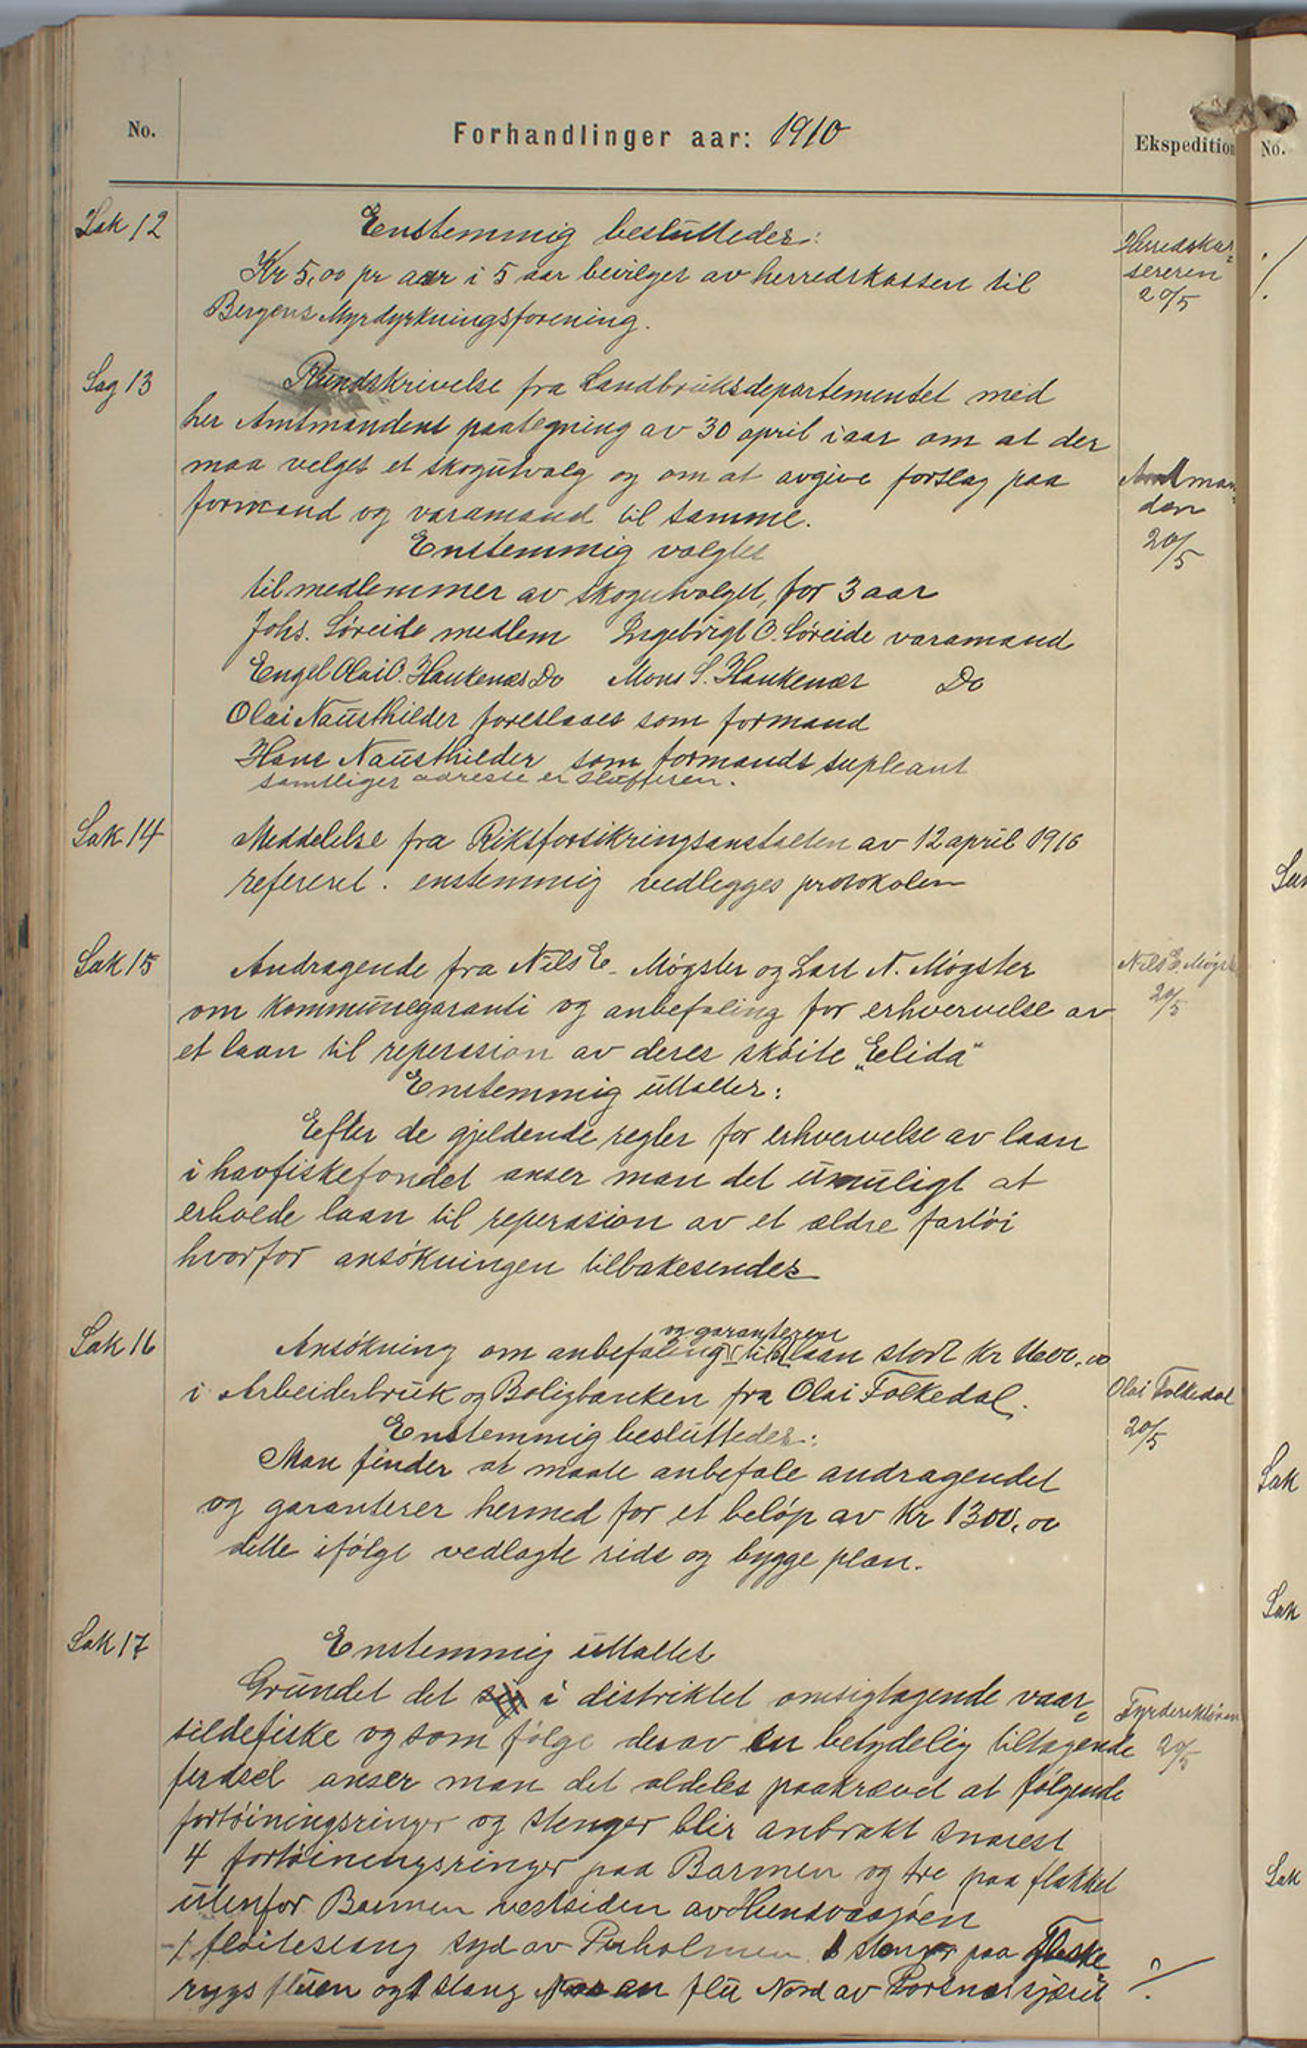 No.
Forhandlinger aar: 1910
Ekspedition
No.
Sak 12
Enstemmig besluttedes:
Kr 5,00 pr aar i 5 aar bevilges av herredskassen til
Bergens Myrdyrkningsforening.
Herredskas=
sereren
20/5
Sag 13
Rundskrivelse fra Landbruksdepartementet med
her Amtmandens paategning av 30 april i aar om at der
maa velges et skogutvalg og om at avgive forslag paa
formand og varamand til samme.
Amtman=
den
20/5
Enstemmig valgtes
til medlemmer av skogutvalget, for 3 aar
Johs. Søreide medlem Ingebrigt O. Søreide varamand
Engel Olai O. Haukenæs Do Mons S. Haukenæs Do
Olai Nausthilder foreslaaes som formand
Hans Nausthilder som formands supleant
samtliges adresse er
Sak 14
Meddelelse fra Riksforsikringsanstalten av 12 april 1910
refereret. enstemmig vedlegges protokolen
Sak 15
Andragende fra Nils E. Møgster og Lars N. Møgster
om kommunegaranti og anbefaling for erhvervelse av
et laan til reperasion av deres skøite „Elida"
Nils E. Møgst
20/5
Enstemmig uttaltes:
Efter de gjeldende regler for erhvervelse av laan
i havfiskefondet anser man det umuligt at
erholde laan til reperasion av et ældre fartøi
hvorfor ansøkningen tilbakesendes
Sak 16
og garanteren
Ansøkning om anbefaling til laan stort kr 1600,00
i Arbeiderbruk og Boligbanken fra Olai Folkedal.
Olai Folkedal
20/5
Enstemmig besluttedes:
Man finder at maate anbefale andragendet
og garanterer hermed for et beløp av kr 1300,00
dette ifølge vedlagte rids og bygge plan.
Sak 17
Enstemmig uttaltes
Grundet det i distriktet omsigtagende vaar=
sildefiske og som følge derav en betydelig tiltagende
ferdsel anser man det aldeles paakrævet at følgende
fortøiningsringer og stenger blir anbrakt snarest
4 fortøiningsringer paa Barmen og tre paa flakket
utenfor Barmen vestsiden av Hundvaagøen
1 fløitestang syd av Perholmen 1 stenger paa Fleske
rygs fluen og 1 stang en flu Nord av Porsnesskjæret
Fyrdirektøren
20/5
Sak
Sak
Sak